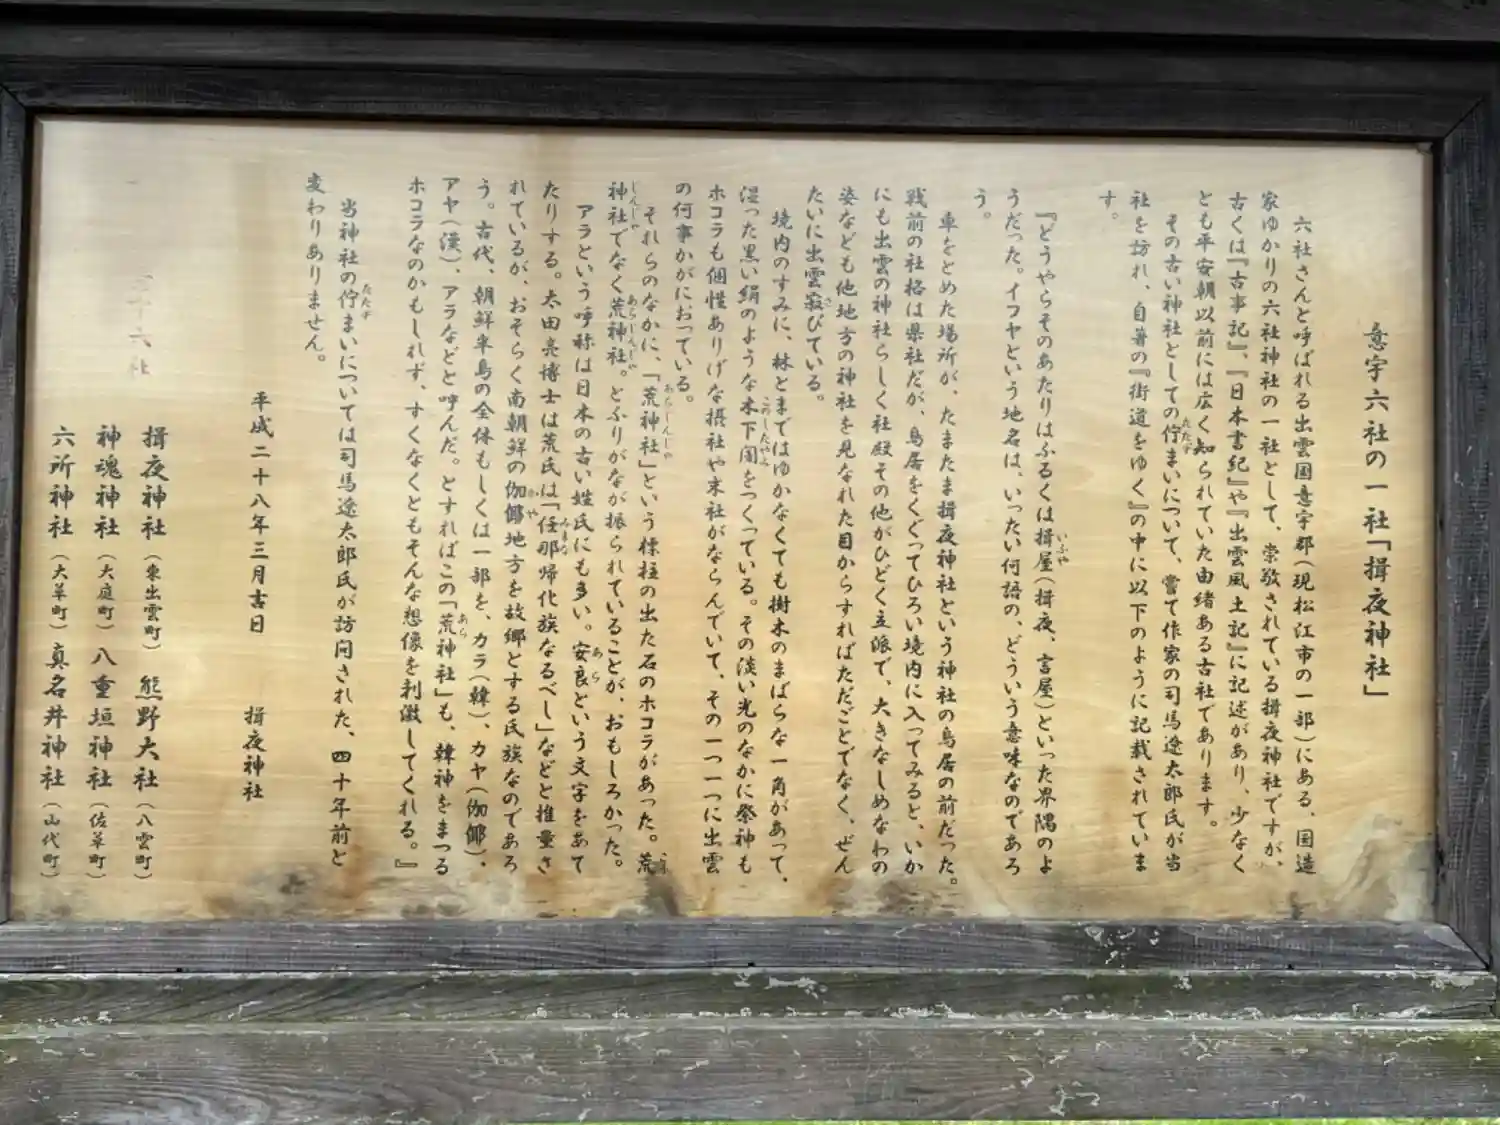 意宇六社の一社「揖夜神社」
六社さんと呼ばれる出雲国意宇郡(現松江市の一部)にある、国造
家ゆかりの六社神社の一社として、崇敬されている揖夜神社ですが、
古くは『古事記』、『日本書紀』や『出雲風土記』に記述があり、少なく
とも平安朝以前には広く知られていた由緒ある古社であります。
その古い神社としての佇まいについて、嘗て作家の司馬遼太郎氏が当
社を訪れ、自著の『街道をゆく』の中に以下のように記載されていま
す。
『どうやらそのあたりはふるくは揖屋(揖夜、言屋)といった界隈のよ
うだった。イフヤという地名は、いったい何語の、どういう意味なのであろ
う。
車をとめた場所が、たまたま揖夜神社という神社の鳥居の前だった。
戦前の社格は県社だが、鳥居をくぐってひろい境内に入ってみると、いか
にも出雲の神社らしく社殿その他がひどく立派で、大きなしめなわの
姿なども他地方の神社を見なれた目からすればただごとでなく、ぜん
たいに出雲寂びている。
境内のすみに、林とまではゆかなくても樹木のまばらな一角があって、
湿った黒い絹のような木下闇をつくっている。その淡い光のなかに祭神も
ホコラも個性ありげな摂社や末社がならんでいて、その一つ一つに出雲
の何事かがにおっている。
それらのなかに、「荒神社」という標柱の出た石のホコラがあった。荒
神社でなく荒神社。とふりがなが振られていることが、おもしろかった。
アラという呼称は日本の古い姓氏にも多い。安良という文字をあて
たりする。太田亮博士は荒氏は「任那帰化族なるべし」などと推量さ
れているが、おそらく南朝鮮の伽倻地方を故郷とする氏族なのであろ
う。古代、朝鮮半島の全体もしくは一部を、カラ(韓)、カヤ(伽倻)、
アヤ(漢)、アラなどと呼んだ。とすればこの「荒神社」も、韓神をまつる
ホコラなのかもしれず、すくなくともそんな想像を刺激してくれる。』
当神社の佇まいについては司馬遼太郎氏が訪問された、四十年前と
変わりありません。
平成二十八年三月吉日 揖夜神社
六社
揖夜神社(東出雲町) 熊野大社(八雲町)
神魂神社(大庭町) 八重垣神社(佐草町)
六所神社(大草町) 真名井神社(山代町)